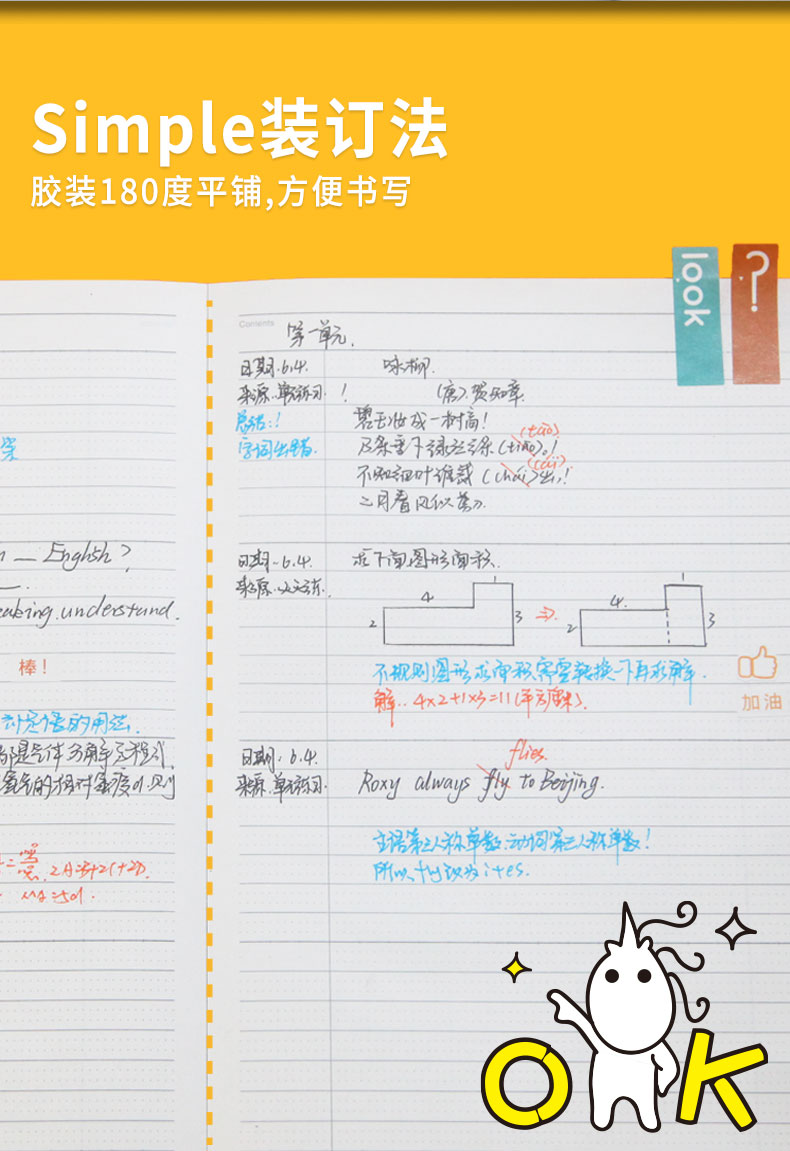 Simple装订法
胶装180度平铺,方便书写
look
?
Contents
第一单元.
日期.6.4. 咏柳.
来源.单元练习. ! (唐).贺知章.
总结:! 碧玉妆成一树高!
(tāo).
字词出错. 条垂下绿丝条(tiāo)。!
(cái)
不知细叶谁裁(chái)出,!
二月春风似剪刀
English?
日期.6.4. 求下面图形面积.
来源.
understand.
4 1
2 3
⇒
4. 1
2 3
棒!
不规则图形求面积需要转换一下再求解.
解:4×2+1×3=11(平方厘米).
加油
的用法.
flies.
日期:6.4.
来源.单元练习. Roxy always fly to Beijing.
主语第三人称单数.动词第三人称单数!
所以,fly改为i+es.
OK